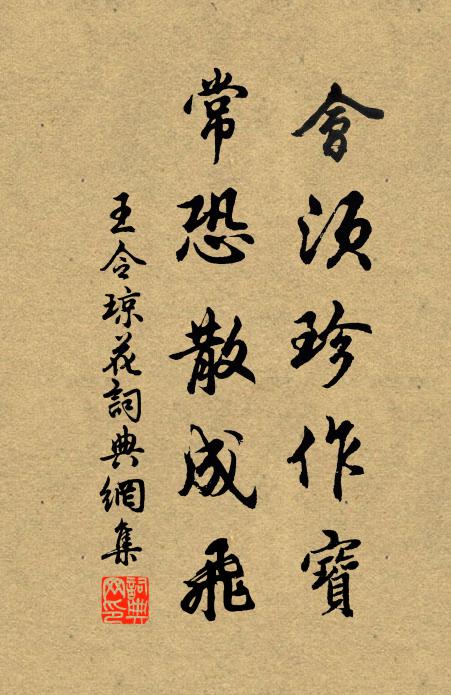 會須珍作寶
常恐散成飛
王令瓊花詞典網集
詞典網印